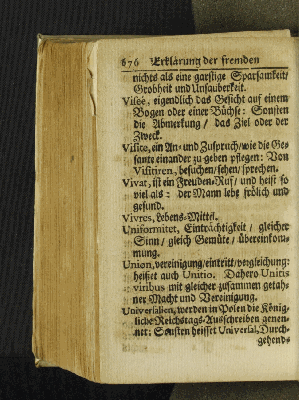 676 Erklärung der fremden
nichts als eine garstige Sparsamkeit/
Grobheit und Unsauberkeit.
Viseé, eigendlich das Gesicht auf einem
Bogen oder einer Büchse: Sonsten
die Abmerkung/ das Ziel oder der
Zweck.
Visite, ein An- und Zuspruch/wie die Ge-
sante einander zu geben pflegen: Von
Visitiren, besuchen/sehen/sprechen.
Vivat, ist ein Freuden-Ruf/ und heist so
viel als: der Mann lebt frölich und
gesund.
Vivres, Lebens-Mittel.
Uniformitet, Einträchtigkeit/ gleicher
Sinn/ gleich Gemüte/ übereinkom-
mung.
Union, vereinigung/eintritt/vergleichung:
heißet auch Unitio. Dahero Unitis
viribus mit gleicher zusammen gesatz-
ner Macht und Vereinigung.
Universalien, werden in Polen die König-
liche Reichstags-Ausschreiben genen-
net: Sonsten heisset Universal, Durch-
gehends